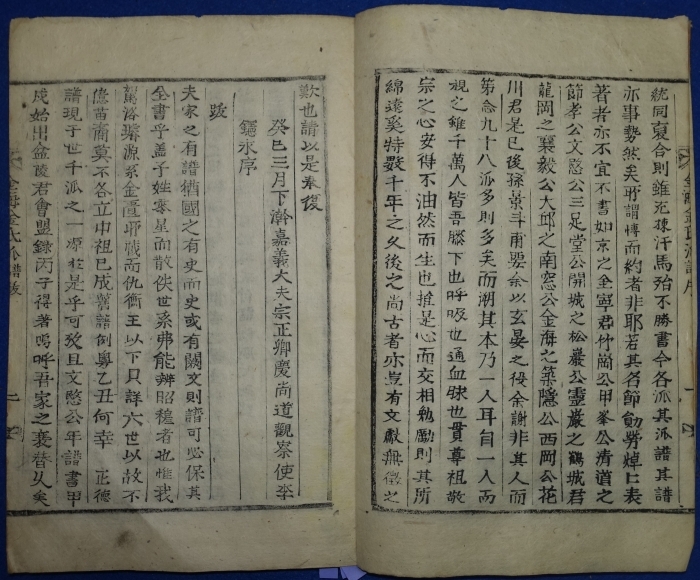 統同敻合則雖充棟汗馬殆不勝書今各派其派譜其譜
亦事勢然矣所謂博而約者非耶若其名節勳勞焯上表
著者亦不宜不書如京之金寧君竹崗公甲峯公淸道之
節孝公文愍公三足堂公開城之松巖公靈巖之鶴城君
龍岡之襄毅公大邱之南窓公金海之築隱公西岡公花
川君是已後孫景斗甫要余以玄晏之役余謝非其人而
第念九十八派多則多矣而溯其本乃一人耳自一人而
視之雖千萬人皆吾膝下也呼吸也通血脉也貫尊祖敬
宗之心安得不油然而生也推是心而交相勉勵則其所
綿遠奚特數千年之久後之尚古者亦豈有文獻無徵之
金海金氏派譜序
一
歎也請以是奉復
癸巳三月下澣嘉義大夫宗正卿慶尚道觀察使李
𨯶永序
跋
夫家之有譜猶國之有史而史或有闕文則譜可必保其
全書乎盖子姓寒星而散佚世系弗能辨昭穆者也惟我
駕洛璿源系金
王以下只詳六世以故不
億苗裔莫不各立中祖已成舊譜例粤乙丑何幸 正德
譜現于世千派之一源於是乎可攷且文愍公年譜書甲
戌始出金陵君會盟錄丙子得著嗚呼吾家之衰替久矣
金海金氏派譜跋
二